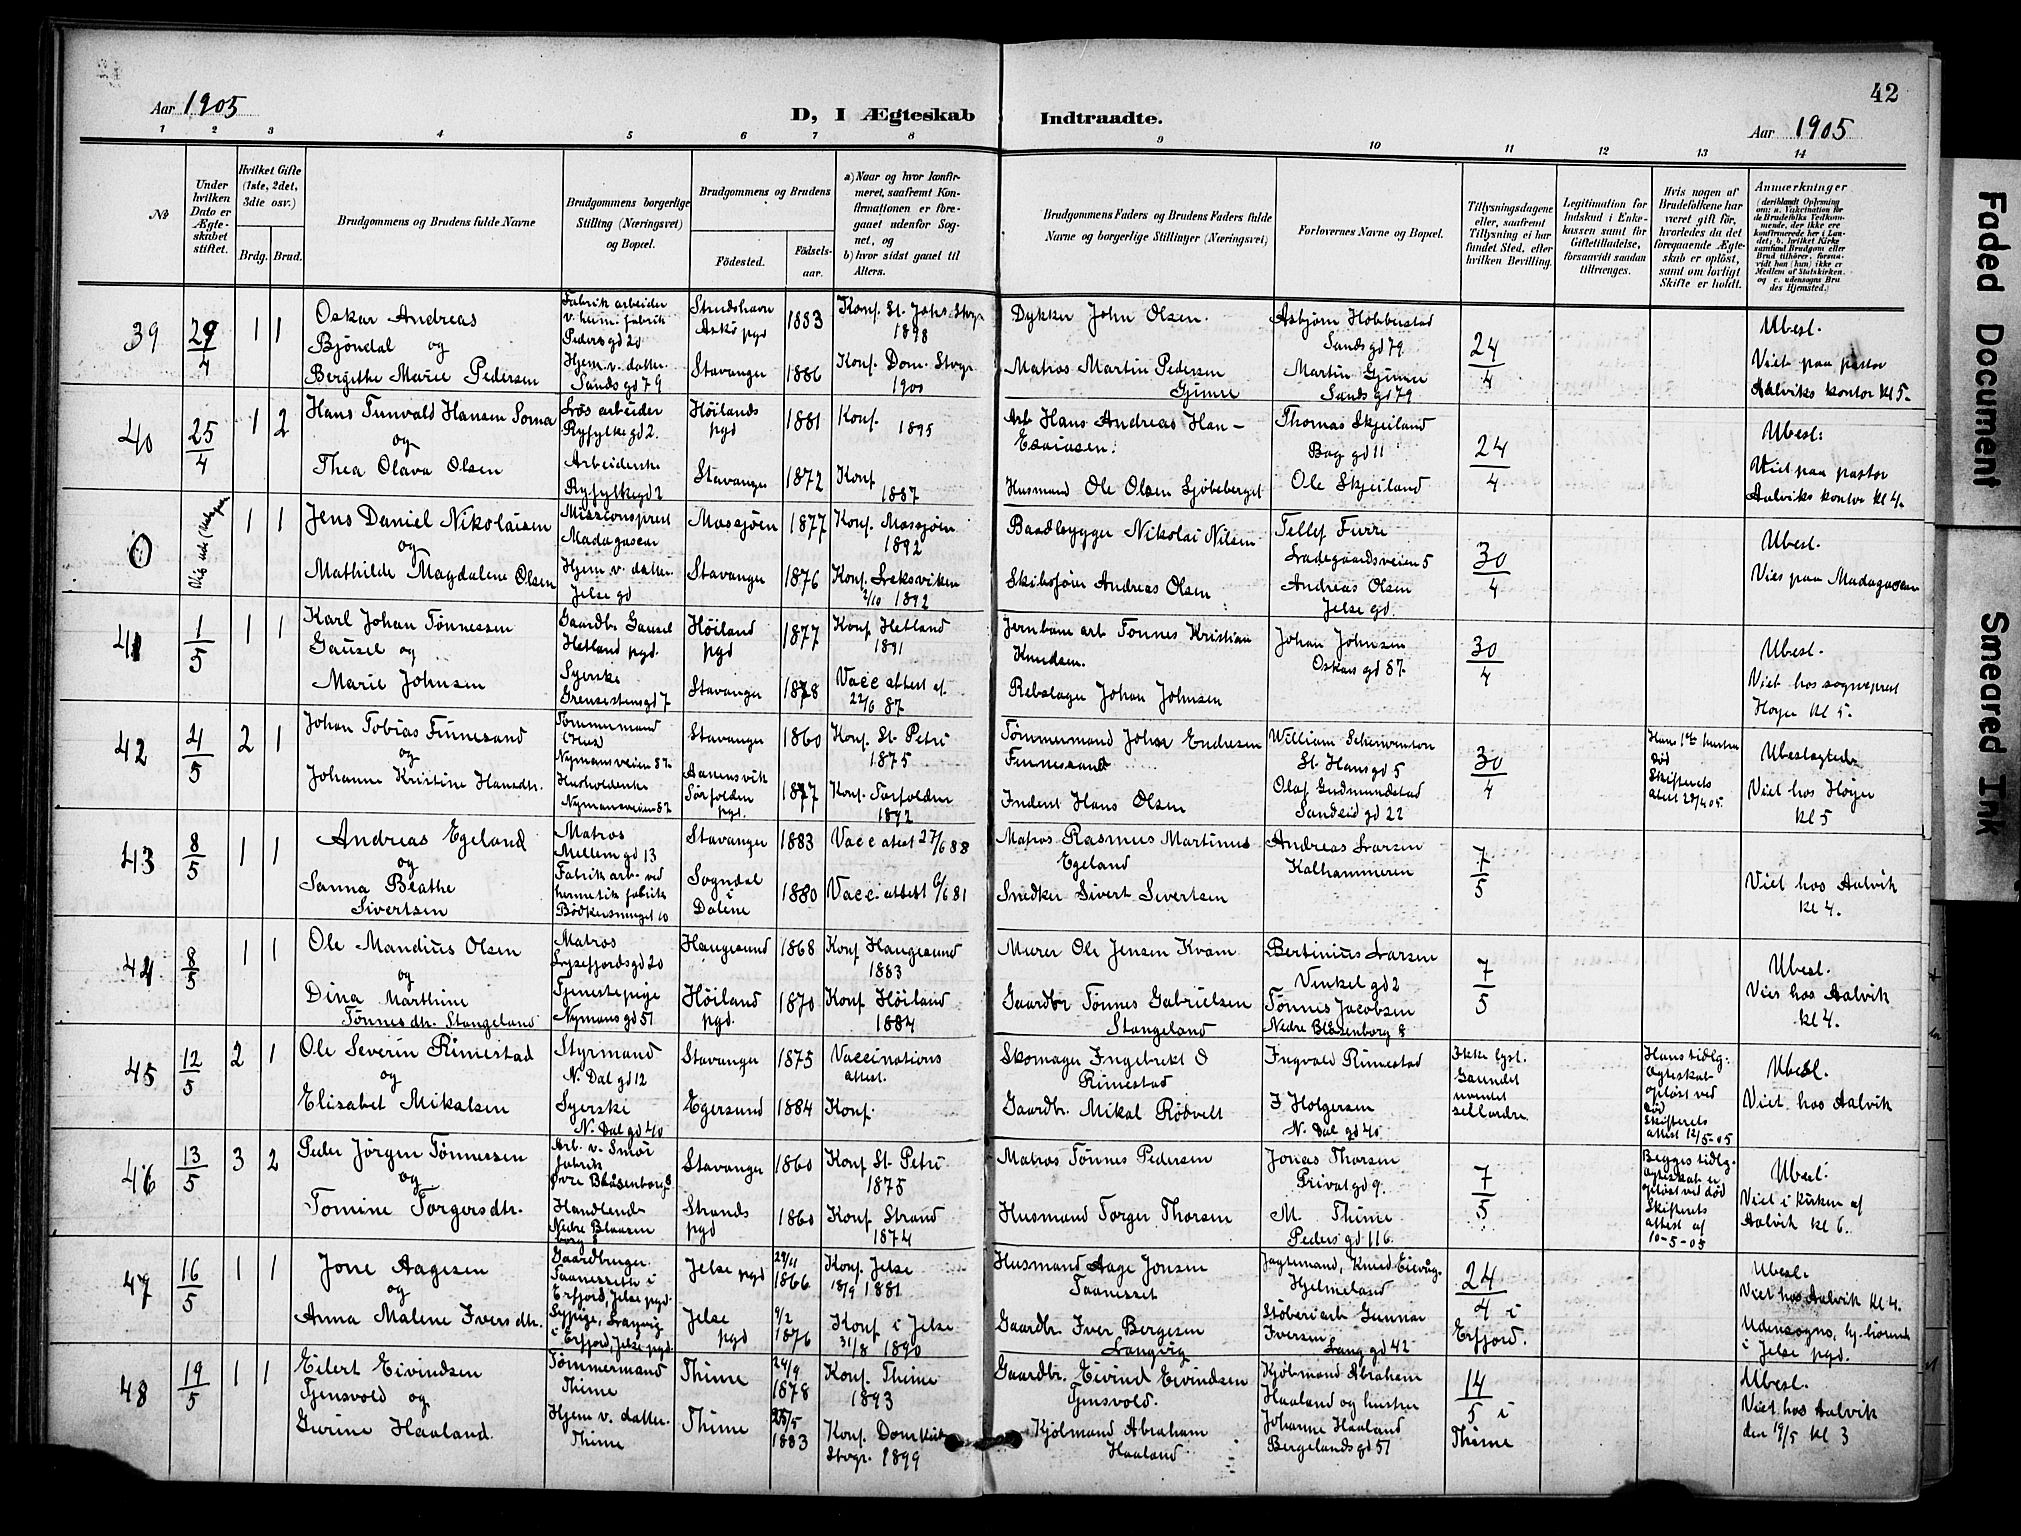 42
Aar 1905
D, I Ægteskab Indtraadte.
Aar 1905
1 2 3 4 5 6 7 8 9 10 11 12 13 14
№
Under hvilken Dato er Ægteskabet stiftet.
Hvilket Gifte (1ste, 2det, 3die osv.)
Brdg. Brud.
Brudgommens og Brudens fulde Navne
Brudgommens borgerlige Stilling (Næringsvei) og Bopæl.
Brudgommens og Brudens
Fødested.
Fødselsaar.
a) Naar og hvor konfirmeret, saafremt Konfirmationen er foregaaet udenfor Sognet, og
b) hvor sidst gaaet til Alters.
Brudgommens Faders og Brudens Faders fulde Navne og borgerlige Stillinger (Næringsvei)
Forlovernes Navne og Bopæl.
Tillysningsdagene eller, saafremt Tillysning ei har fundet Sted, efter hvilken Bevilling.
Legitimation for Indskud i Enkekassen samt for Giftetilladelse, forsaavidt saadan tiltrænges.
Hvis nogen af Brudefolkene har været gift før, hvorledes da det foregaaende Ægteskab er opløst, samt om lovligt Skifte er holdt.
Anmerkninger
39 29/4 1 1
Oskar Andreas
Bjöndal og
Bergithe Marie Pedersen
Fabrik arbeider
v. herm. fabrik
Pedersgd 20
Hjem. v. datter
Sandsgd 79
Strudshavn
Askö pgd 1883
Stavanger 1886
Konf. St. Johs. Stvgr
1898
Konf. Dom. Stvgr
1900
Dykker John Olsen.
Matros Martin Pedersen
Gimre
Asbjørn Hobberstad
Sandsgd 79
Martin Gimre
Sandsgd 79
24/4
Ubesl.
Viet paa pastor
Aalviks kontor kl 5.
40 25/4 1 2
Hans Tunvald Hansen Soma
og
Thea Olava Olsen
Løs arbeider
Ryfylkegd 2.
Arbeiderske
Ryfylkegd 2
Höilands
pgd 1881
Stavanger 1872
Konf.
1895
Konf
1887
Arb Hans Andreas Han-
Esaiasen.
Husmand Ole Olsen Sjöbeberget
Thomas Skjeiland
Bag gd 11
Ole Skjeiland
24/4
Ubesl.
Viet paa pastor
Aalviks kontor kl 4.
0 1 1
Jens Daniel Nikolaisen
og
Mathilde Magdalene Olsen
Missionsprest
Madagascar
Hjem v. datter.
Jelsegd
Mossjøen 1877
Stavanger 1876
Konf. Mossjøen
1892
Konf. Leksviken
2/10 1892
Baadbygger Nikolai Nilsen
Skibsfører Andreas Olsen
Tellef Furre
Ladegaardsveien 5
Andreas Olsen
Jelse gd.
30/4
Ubesl.
Vies paa Madagascar
41 1/5 1 1
Karl Johan Tönnessen
Gausel og
Marie Johnsen
Gaardbr. Gausel
Hetland pgd.
Syerske
Grensestensgd 7
Höiland
pgd 1877
Stavanger 1878
Konf Hetland
1891
Vacc attest af.
22/6 87
Jernbane arb Tönnes Kristian
Knudsen.
Rebslager Johan Johnsen
Johan Johnsen
Oskars gd 87.
30/4
Ubesl.
Viet hos sogneprest
Høyer kl 5.
42 4/5 2 1
Johan Tobias Finnesand
og
Johanne Kristine Hansdtr.
Tømmermand
(Hus)
Nymansveien 87.
Husholderske
Nymansveien 87
Stavanger 1860
Sørfolden
pgd. 1877
Konf. St. Petri
1875
Konf. Sørfolden
1892
Tømmermand Johs Endresen
Finnesand
Inderst Hans Olsen
William Schwenzton
St. Hansgd 5
Olaf Gudmundstad
Sandeid gd 22
30/4
Hans 1ste hustru
död
Skifterets
attest 29/4 05.
Ubeslægtede
Viet hos Høyer
kl 5
43 8/5 1 1
Andreas Egeland
og
Sanna Beathe
Sivertsen
Matros
Mellem gd 13
Fabrik arb. ved
hermetik fabrik
Bödkersmuget 10
Stavanger 1883
Sogndal
i
Dalene 1880
Vacc attest 27/6 88
Vacc. attest 6/6 81
Matros Rasmus Martinus
Egeland
Snedker Sivert Sivertsen
Andreas Larsen
Kalhammeren
7/5
Viet hos Aalvik
kl 4.
44 8/5 1 1
Ole Mandius Olsen
og
Dina Marthine
Tönnesdtr. Stangeland
Matros
Lysefjordsgd 20
Tjenestepige
Nymans gd 51
Haugesund 1868
Höiland
pgd. 1870
Konf Haugesund
1883
Konf Höiland
1884
Murer Ole Jensen Kvam
Gaardbr Tönnes Gabrielsen
Stangeland
Bertinius Larsen
Vinkel gd 2
Tönnes Jacobsen
Nedre Blaasenborg 8
7/5
Ubesl.
Vies hos Aalvik
kl 4.
45 12/5 2 1
Ole Severin Rimestad
og
Elisabet Mikalsen
Styrmand
N. Dal gd 12
Syerske
N. Dal gd 40
Stavanger 1875
Egersund 1884
Vaccinations
attest.
Konf.
Skomager Ingebrekt O
Rimestad
Gaardbr. Mikal Rødvelt
Ingvald Rimestad
I Holgersen
N. Dal gd 40
Ikke lyst.
Hans tidlg.
ægteskab
opløst ved
død
Skifterets
attest 12/5-05
Ubesl.
Viet hos Aalvik
46 13/5 3 2
Peder Jörgen Tönnessen
og
Tomine Torgersdtr.
Arb. v. Smör
fabrik
Øvre Blåsenborg 8
Handlende
Nedre Blaasen
borg 8
Stavanger 1860
Strands
pgd 1860
Konf St. Petri
1875
Konf Strand
1874
Matros Tönnes Pedersen
Husmand Torger Thorsen
Jonas Thorsen
Privatgd 9.
M. Thime
Peders gd 116
7/5
Begges tidlg.
ægteskab er
opløst ved død
Skifterets
attest af
10-5-05
Ubesl.
Viet i kirken af
Aalvik kl 6.
47 16/5 1 1
Jone Aagesen
og
Anna Malene Iversdtr.
Gaardbruger
Taanesseth i
Erfjord, Jelse pgd.
Sypige, Langvig
i Erfjord, Jelse pgd.
Jelse pgd 29/11 1866
Jelse
pgd 9/2 1876
Konf. Jelse
18/9 1881
Konf i Jelse
31/8 1890
Husmand Aage Jonsen
Taanesset
Gaardbr. Iver Bergesen
Langvig
Hjelmeland
Støberiarb Gunnar
Iversen
Lang gd 42
24/4 i
Erfjord.
Ubesl.
Viet hos Aalvik kl 4.
Udensogns, hj. hörende
i Jelse pgd.
48 19/5 1 1
Eilert Eivindsen
Tjensvold og
Gurine Haaland.
Tømmermand
Thime
Hjem v. datter.
Thime
Thime 24/9 1878
Thime 25/5 1883
Konf. Thime
1893
Konf. Domkirk
Stvgr. 1899
Gaardbr. Eivind Eivindsen
Tjensvold.
Kjöbmand Abraham
Haaland
Kjöbmand Abraham
Haaland og hustru
Johanne Haaland
Bergelandsgd 51
14/5 i
Thime
Ubesl.
Viet hos Aalvik
den 19/5 kl 3
Faded Document
Smeared Ink